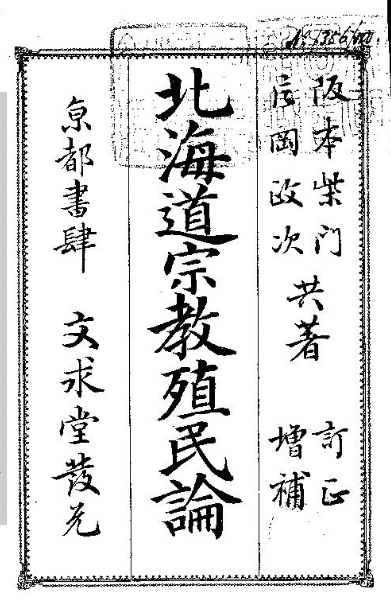 阪本柴门
片岡政次
共著
訂正
増補
北海道宗教殖民論
京都書肆 文求堂發兌